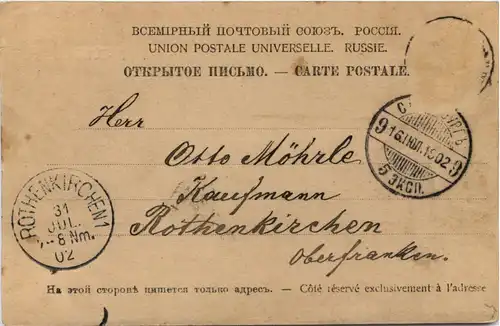 ВСЕМІРНЫЙ ПОЧТОВЫЙ СОЮЗЪ. РОССІЯ.
UNION POSTALE UNIVERSELLE. RUSSIE.
ОТКРЫТОЕ ПИСЬМО. — CARTE POSTALE.
Herr
Otto Möhrle
Kaufmann
Rothenkirchen
Oberfranken.
9 16 1902 9
5 ЭКСП.
ROTHENKIRCHEN 1
31
JUL.
7-8 Nm.
02
На этой сторонѣ пишется только адресъ. — Côté réservé exclusivement à l'adresse